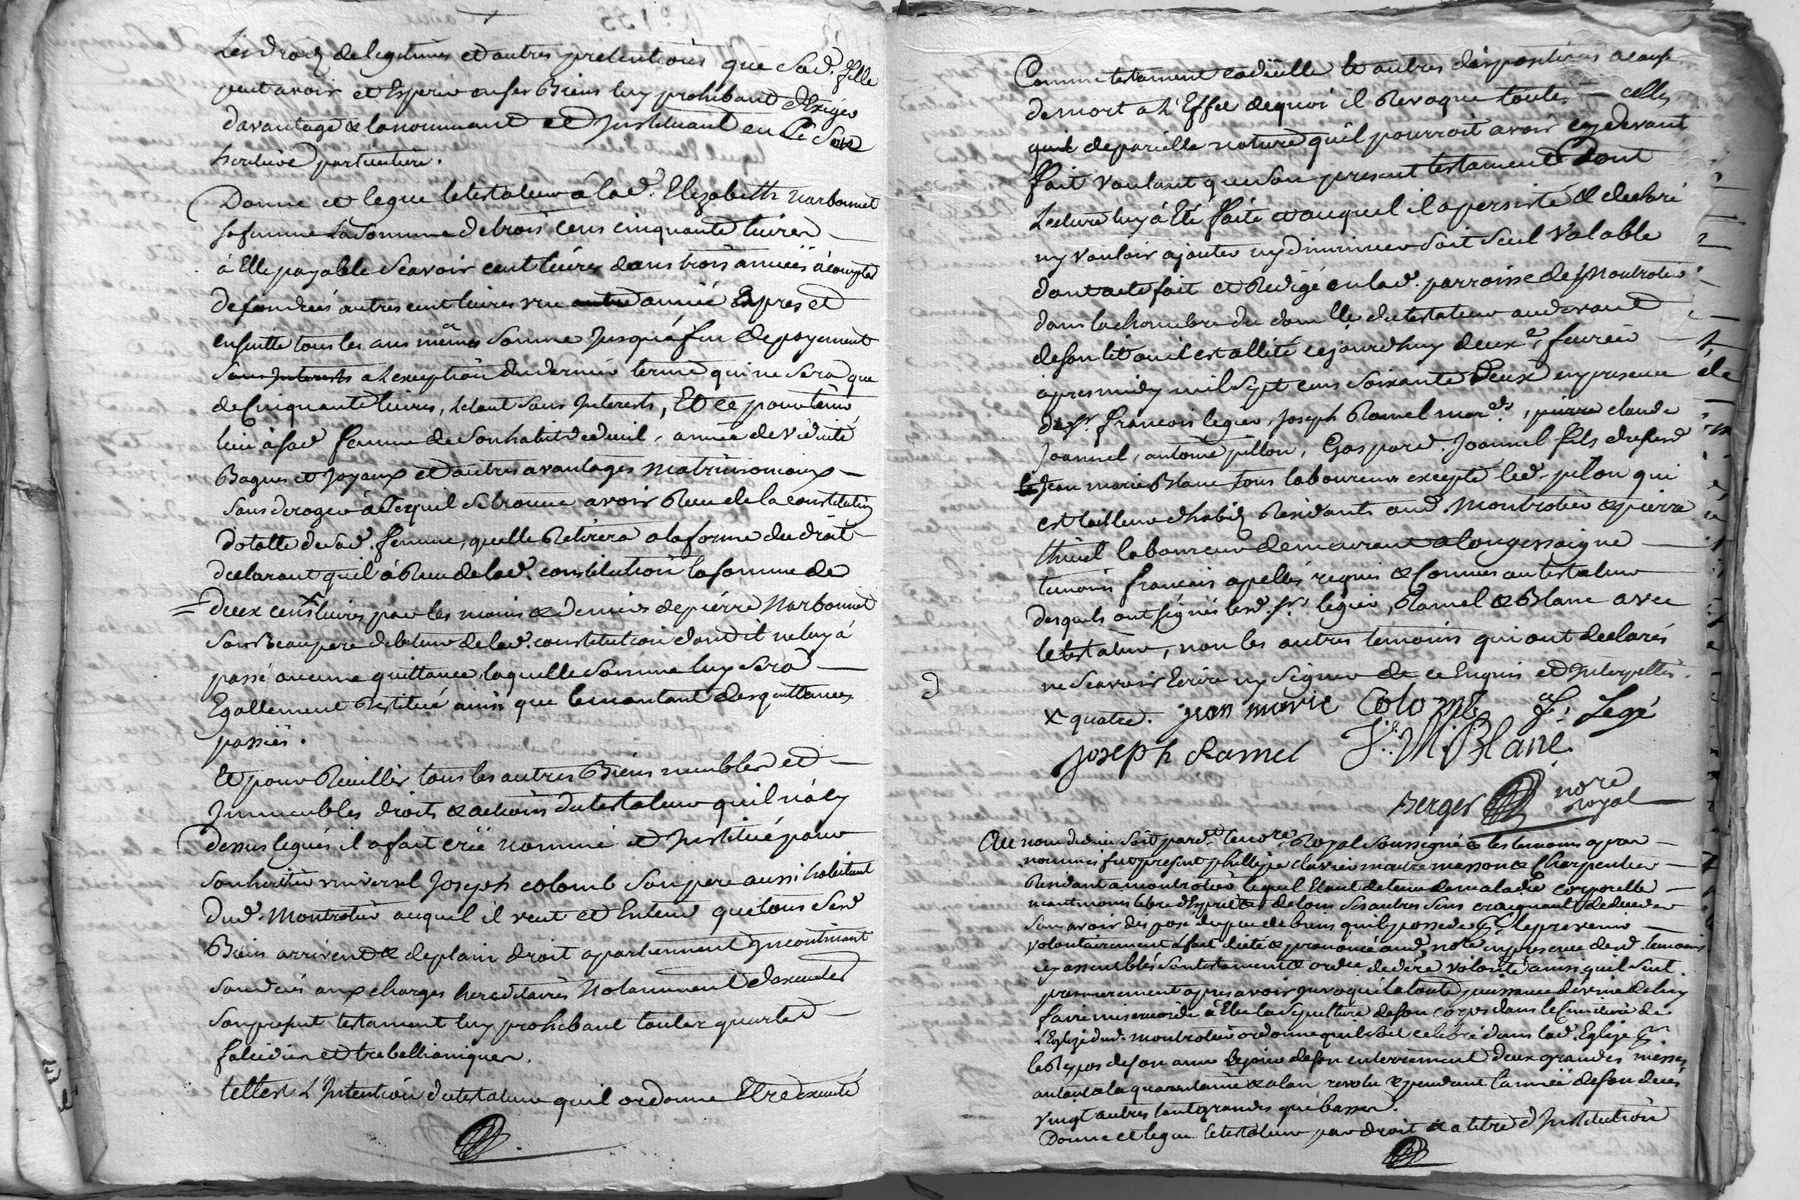 Les droits de legitimes et autres pretentions que Sad. fille
peut avoir et Esperer en ses Biens luy prohibant d'Exiger
davantage & la nommant et Jnstituant en Ce Son
heritiere particuliere.
Donne et legue le testateur à lad. Elizabeth Narbonnet
sa femme la Somme de trois cens cinquante livres
à Elle payable Scavoir cent livres dans trois années à compter
de son decés autres cent livres une année Expres et
ensuitte tous les ans même Somme Jusqu'à fin de payement
Sans Jnterests a L'exception du dernier terme qui ne Sera que
de Cinquante livres, le tout Sans Jnterests, Et ce pour tenir
lieu à sad. femme de Son habit de deuil, année de viduité
Bagues et Joyaux et autres avantages matrimoniaux
Sans deroger à Ce qu'il Se trouve avoir Reçu de la constitution
Dotalle de sad. femme, quelle Retirera a la forme du droit
declarant qu'il à Reçu de lad. constitution la somme de
deux cens × livres par les mains & deniers de pierre Narbonnet
Son Beaupere debiteur de lad. constitution dont il ne luy à
passé aucune quittance, laquelle Somme luy Sera
Egallement Restitué ainsi que le montant des quittances
passées.
Et pour Recueillir tous les autres Biens meubles et
Jmmeubles droits & actions du testateur qu'il n'a cy
dessus legués il a fait créé nommé et Jnstitué pour
Son heritier universel Joseph Colomb Son pere aussi habitant
dud. Montrotier auquel il veut et Entend que tous Sesd.
Biens arrivent & de plain droit apartiennent Jncontinant
Son deces aux charges hereditaires Notamment d'executer
Son present testament luy prohibant toutes quartes
falcidies et trebellianiques.
telle est L'Jntention du testateur qu'il ordonne Etre executé
Comme testament codicille et autres dispositions a cause
de mort a L'Effet de quoi il Revoque toutes celles
que de pareille nature qu'il pourroit avoir cy devant
fait voulant que Son present testament dont
Lecture luy à Eté faite et auquel il a persisté & declaré
ny vouloir ajouter ny diminuer Soit Seul Valable
dont acte fait et Redigé en lad. parroisse de Montrotier
dans la chambre du domicille du testateur audevant
de son lit ou il est allité cejourd'huy deux.e fevrier
apres midy mil Sept cens Soixante Deux en presence
de Sr. francois legier, Joseph Ramel mar.ds, pierre claude
Joannel, antoine pillon, Gaspard Joannel fils dud.
Jean marie Blanc tous laboureurs excepté led. pilon qui
est tailleur d'habits Residants aud. Montrotier & pierre
laboureur demeurant a Longessaigne
temoins francois apellés requis & Connus au testateur
desquels ont signés lesd. Sr. legier, Ramel & Blanc avec
le testateur, non les autres temoins qui ont declarés
ne Scavoir Ecrire ny Signer de ce Enquis et Jnterpellés.
× quatre. jean marie Colomb F. Legé
Joseph Ramel J. M. Blanc
Berger no.re royal
Au nom de dieu Soit pard.t le no.re Royal Soussigné & les temoins apres
nommés fut present phillipe clavier maitre masson & Charpentier
Residant a montrotier lequel Etant detenu de maladie corporelle
neantmoins libre d'Esprit & de tous Ses autres Sens craignant de deceder
Sans avoir disposé du peu de biens qu'il possede & le prevenir
volontairement à fait dicté & prononcé aud. no.re en presence desd. temoins
cy assemblés Son testament & ordre de der.e volonté ainsi qu'il suit.
premierement apres avoir Jnvoqué la toute puissance divine de luy
faire misericorde à Elu la Sepulture de son corps dans le Cimetiere de
L'Eglise dud. montrotier ordonne qu'il Soit celebré dans lad. Eglise pr.
le Repos de son ame le jour de son enterrement deux grandes messes
autant a la quarantaine & a l'an revolu & pendant l'année de son deces
vingt autres tant grandes que basses.
Donne et legue le testateur par droit & a titre d'Jnstitution